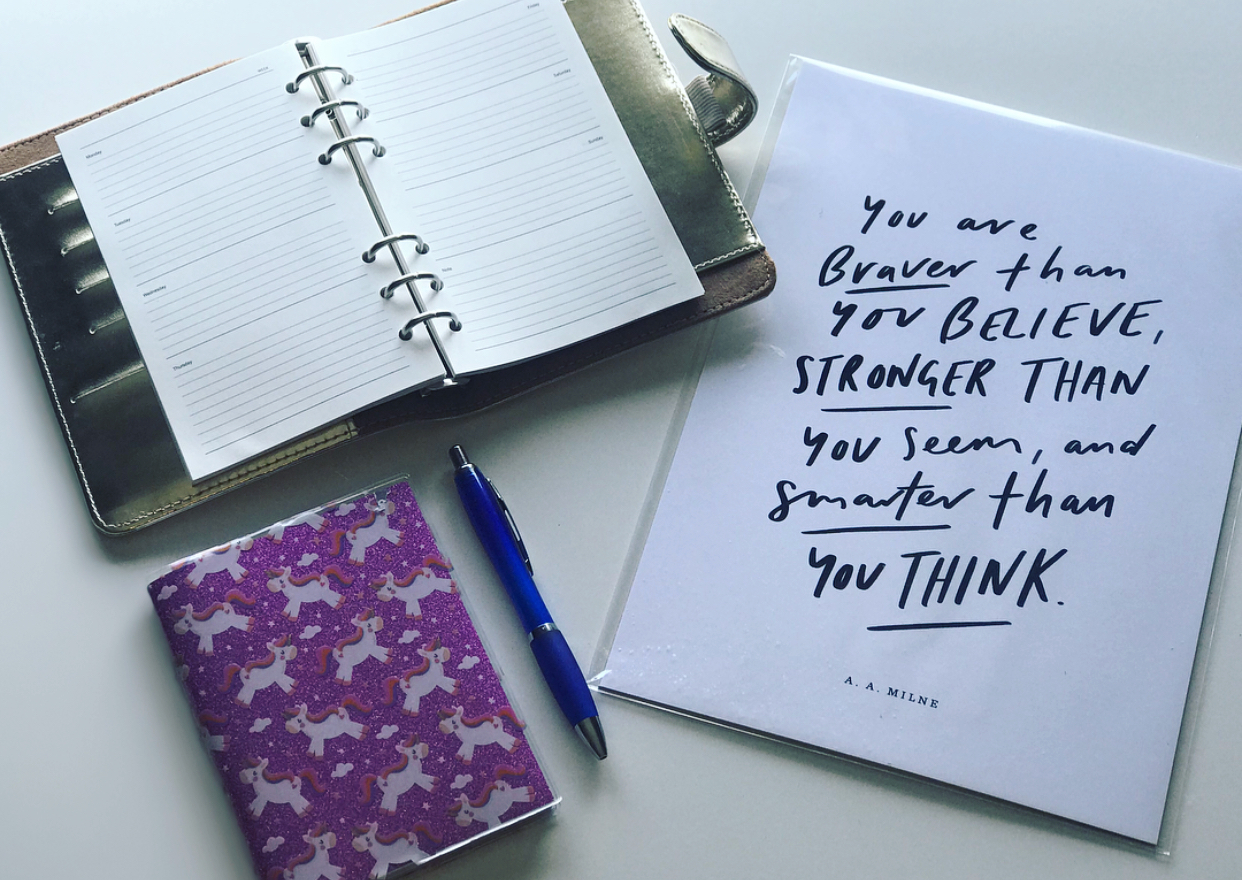 NOTES
Monday
Tuesday
Wednesday
Thursday
Friday
Saturday
Sunday
Notes
You are
Braver than
you BELIEVE,
STRONGER THAN
you seem, and
smarter than
you THINK.
A. A. MILNE